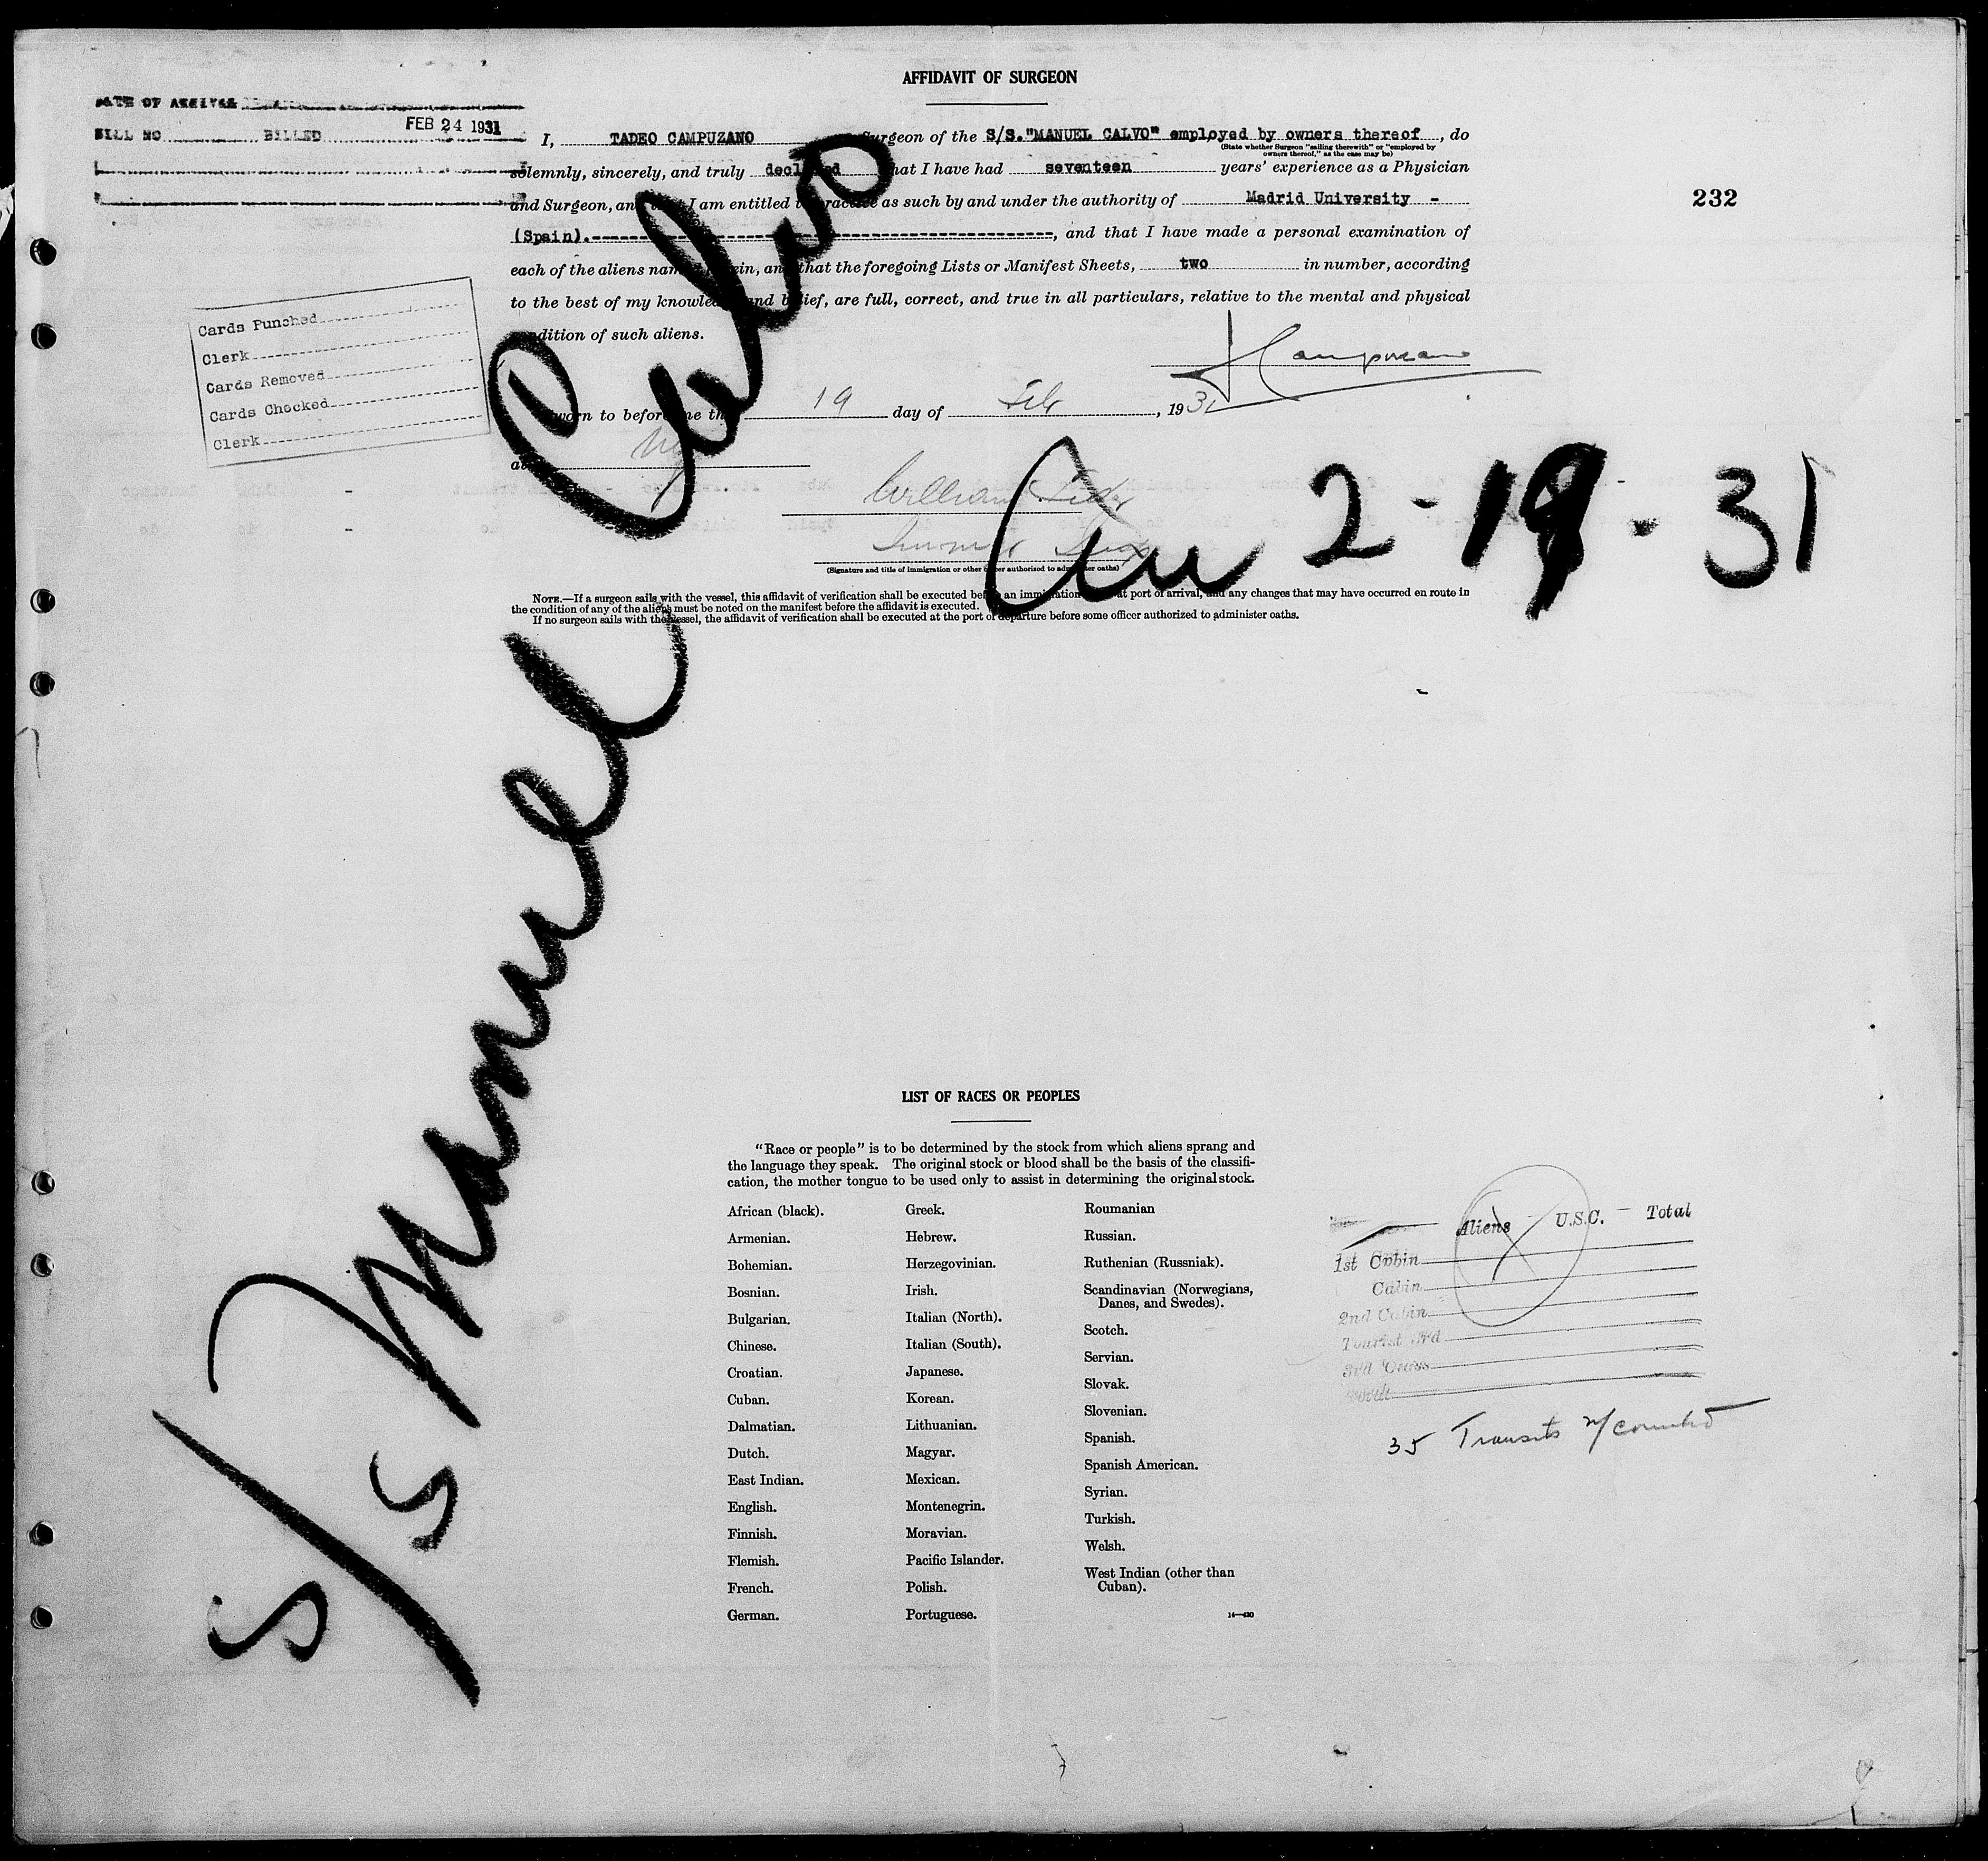 AFFIDAVIT OF SURGEON
DATE OF ARRIVAL
BILL NO BILLED FEB 24 1931
I, TADEO CAMPUZANO Surgeon of the S/S."MANUEL CALVO" employed by owners thereof, do
(State whether Surgeon "sailing therewith" or "employed by
owners thereof," as the case may be)
solemnly, sincerely, and truly that I have had seventeen years' experience as a Physician
and Surgeon, and I am entitled to practice as such by and under the authority of Madrid University -
(Spain).---, and that I have made a personal examination of
each of the aliens named herein, and that the foregoing Lists or Manifest Sheets, two in number, according
to the best of my knowledge and belief, are full, correct, and true in all particulars, relative to the mental and physical
condition of such aliens.
Campuzano
Sworn to before me this 19 day of Feb, 1931
at NY
William
(Signature and title of immigration or other officer authorized to administer oaths)
NOTE.—If a surgeon sails with the vessel, this affidavit of verification shall be executed before an immigration at port of arrival, and any changes that may have occurred en route in
the condition of any of the aliens must be noted on the manifest before the affidavit is executed.
If no surgeon sails with the vessel, the affidavit of verification shall be executed at the port of departure before some officer authorized to administer oaths.
232
Cards Punched
Clerk
Cards Removed
Cards Checked
Clerk
S/S Manuel Calvo
Arr 2-19-31
LIST OF RACES OR PEOPLES
"Race or people" is to be determined by the stock from which aliens sprang and
the language they speak. The original stock or blood shall be the basis of the classifi-
cation, the mother tongue to be used only to assist in determining the original stock.
African (black).
Armenian.
Bohemian.
Bosnian.
Bulgarian.
Chinese.
Croatian.
Cuban.
Dalmatian.
Dutch.
East Indian.
English.
Finnish.
Flemish.
French.
German.
Greek.
Hebrew.
Herzegovinian.
Irish.
Italian (North).
Italian (South).
Japanese.
Korean.
Lithuanian.
Magyar.
Mexican.
Montenegrin.
Moravian.
Pacific Islander.
Polish.
Portuguese.
Roumanian
Russian.
Ruthenian (Russniak).
Scandinavian (Norwegians,
Danes, and Swedes).
Scotch.
Servian.
Slovak.
Slovenian.
Spanish.
Spanish American.
Syrian.
Turkish.
Welsh.
West Indian (other than
Cuban).
14—430
Aliens - U.S.C. - Total
1st Cabin
Cabin
2nd Cabin
Tourist 3rd
3rd Class
35 Transits n/counted